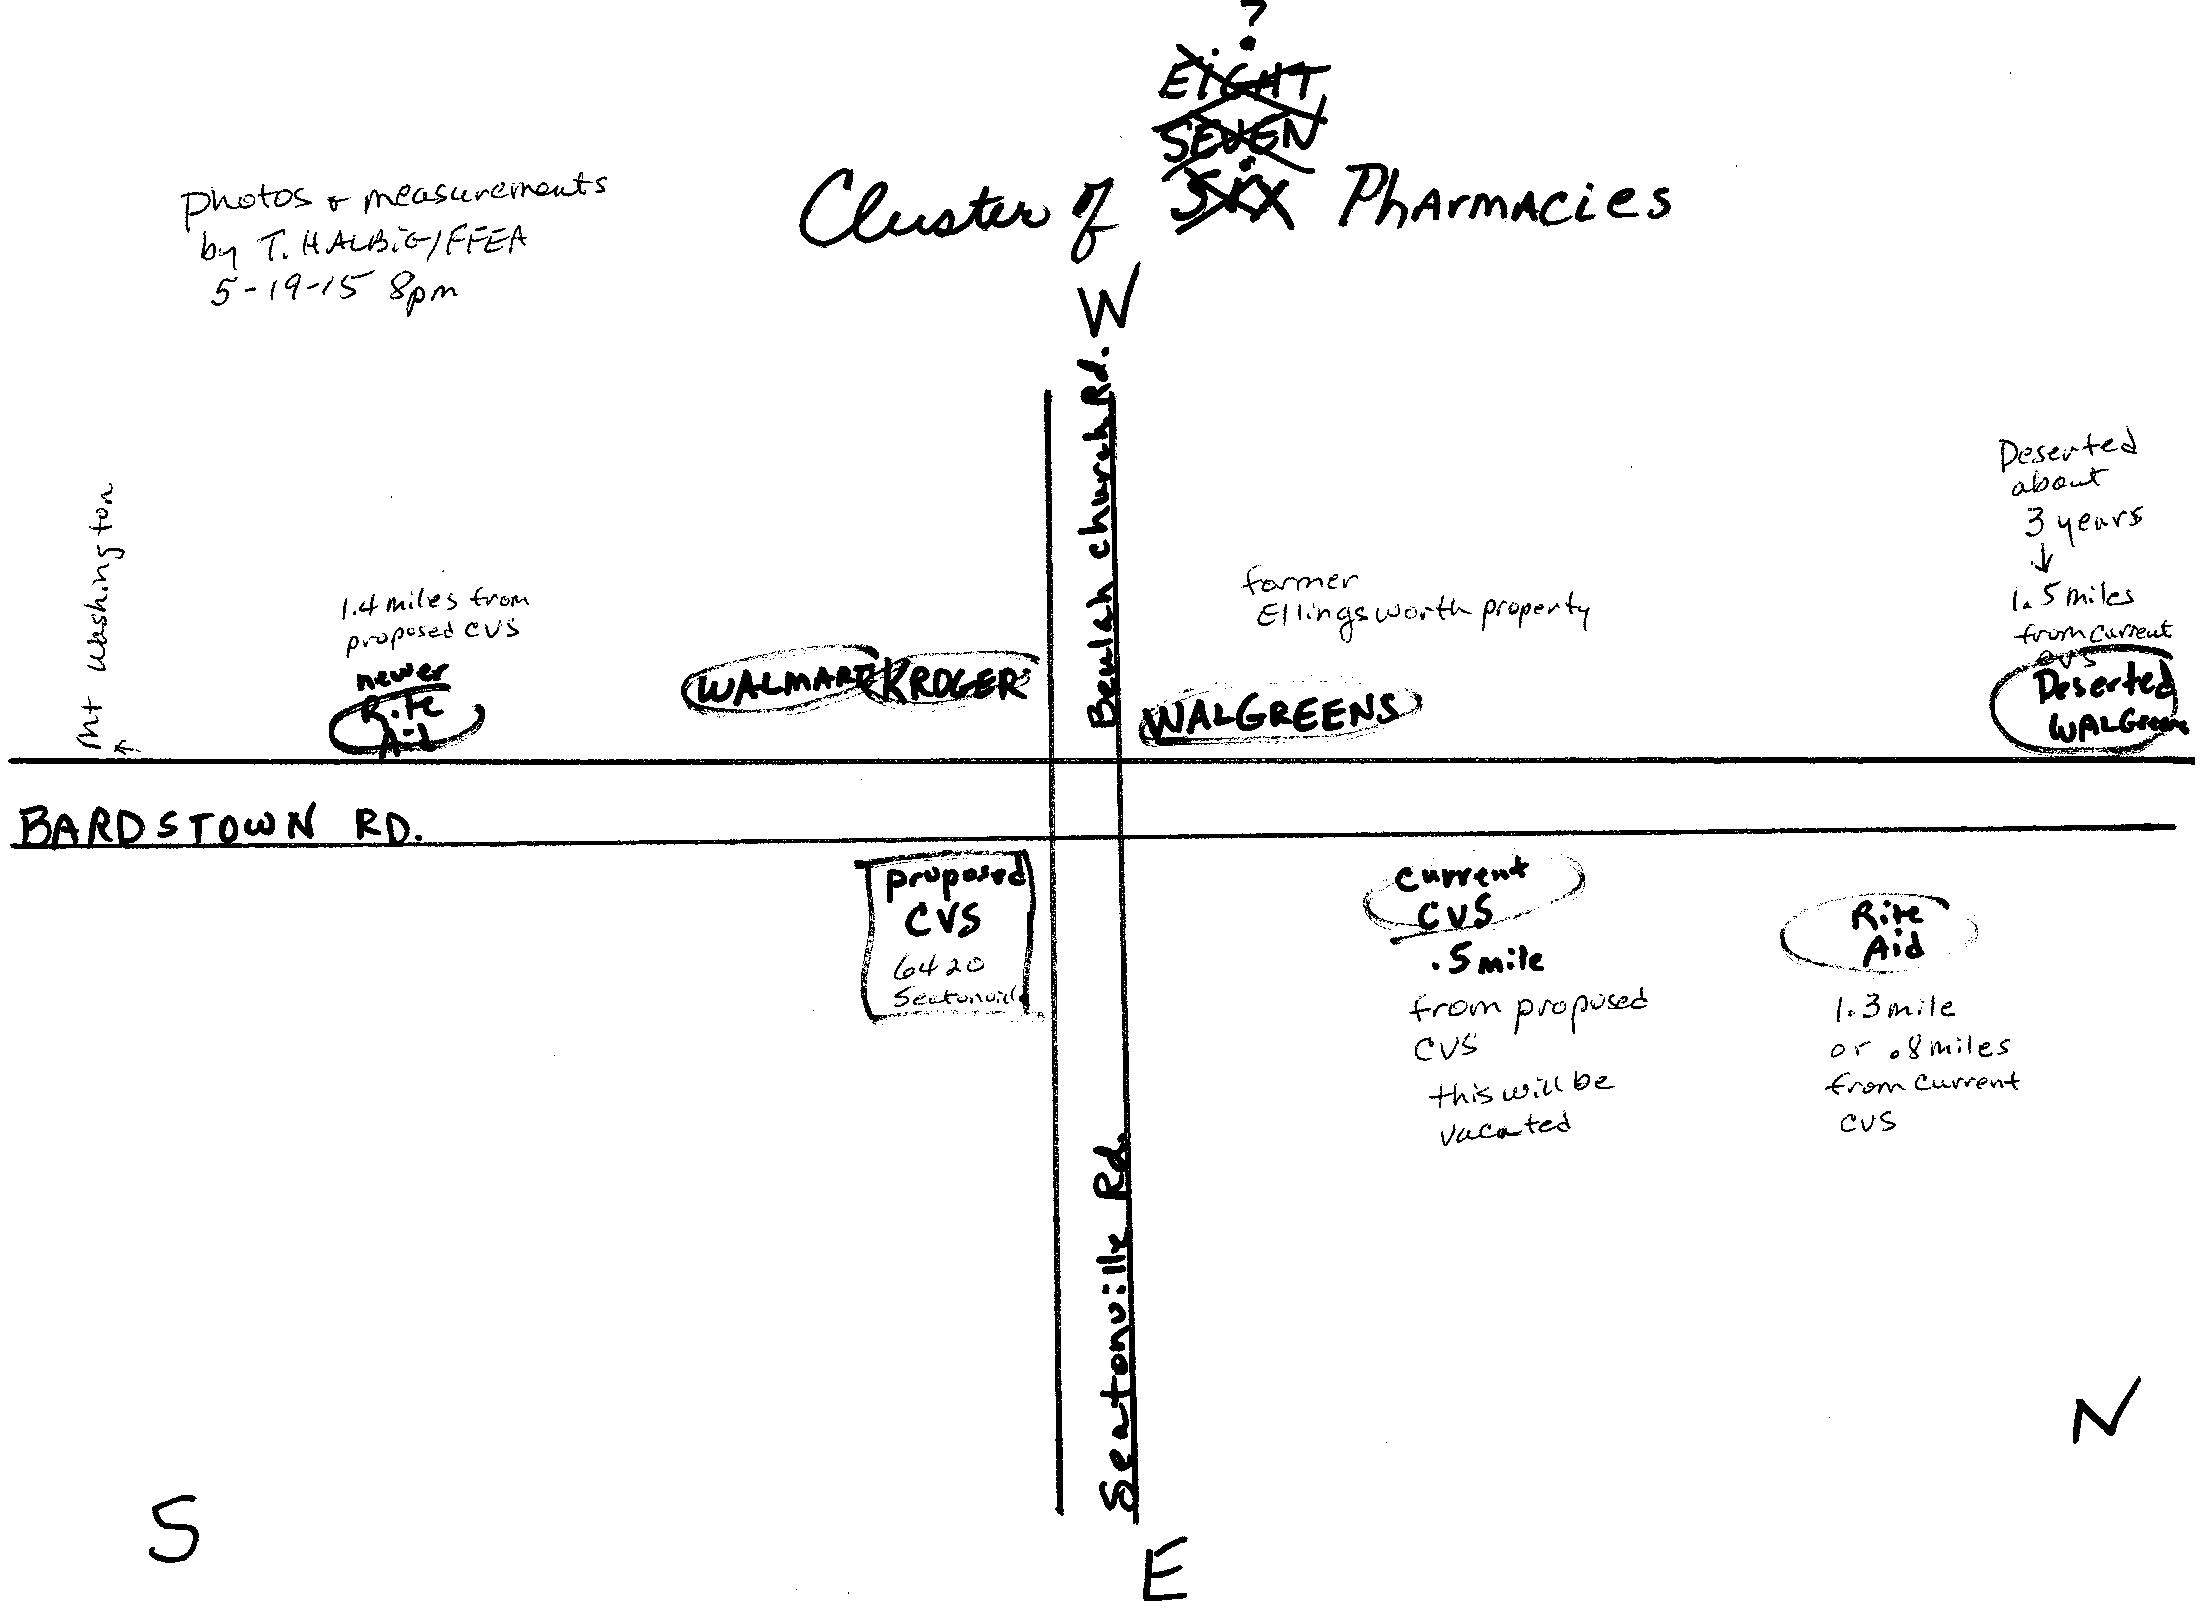 ?
EiGHT
SEVEN
Cluster of Six PhARMACies
photos & measurements
by T. HALBiG/FFEA
5-19-15 8pm
W
Beulah church Rd.
Mt Washington
↑
1.4 miles from
proposed CVS
newer
Rite
Aid
WALMART
KROGER
former
Ellingsworth property
WALGREENS
Deserted
about
3 years
↓
1.5 miles
from current
CVS
Deserted
WALGreens
BARDSTOWN RD.
proposed
CVS
6420
Seatonville
current
CVS
.5 mile
from proposed
CVS
this will be
vacated
Rite
Aid
1.3 mile
or .8 miles
from current
CVS
Seatonville Rd.
N
S
E